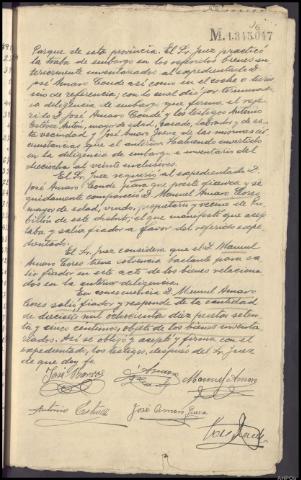 M.1.345.047
Parque de esta provincia. El Sr. Juez practicó
la traba de embargo en los repetidos bienes an-
teriormente inventariados al expedientado D.
José Amaro Conde así como en el coche o turis-
mo de referencia, con lo cual dió por terminada
la diligencia de embargo, que firma el repe-
tido D. José Amaro Conde y los testigos Antonio
mayor de edad, casado, labrador y de es-
ta vecindad y José Amaro de las mismas cir-
cunstancias que el anterior. Habiendo invertido
en la diligencia de embargo e inventario del
al veinte inclusives.
El Sr. Juez requirió al expedientado D.
José Amaro Conde para que preste fianza y se-
guidamente compareció D. Manuel Amaro
mayor de edad, viudo, propietario y vecino de
de este distrito, el que manifestó que
salía fiador a favor del referido expe-
dientado.
El Sr. Juez considera que el D. Manuel
Amaro tiene solvencia bastante para sa-
lir fiador en este acto de los bienes relaciona-
dos en la anterior diligencia.
En consecuencia D. Manuel Amaro
sale fiador y responde de la cantidad
de mil ochocientas diez pesetas seten-
ta y cinco céntimos, objeto de los bienes inventa-
riados. Así se obligó y acepta y firma con el
expedientado, los testigos, después del Sr. Juez
de que doy fe.
José Amaro Manuel Amaro
Antonio José Amaro